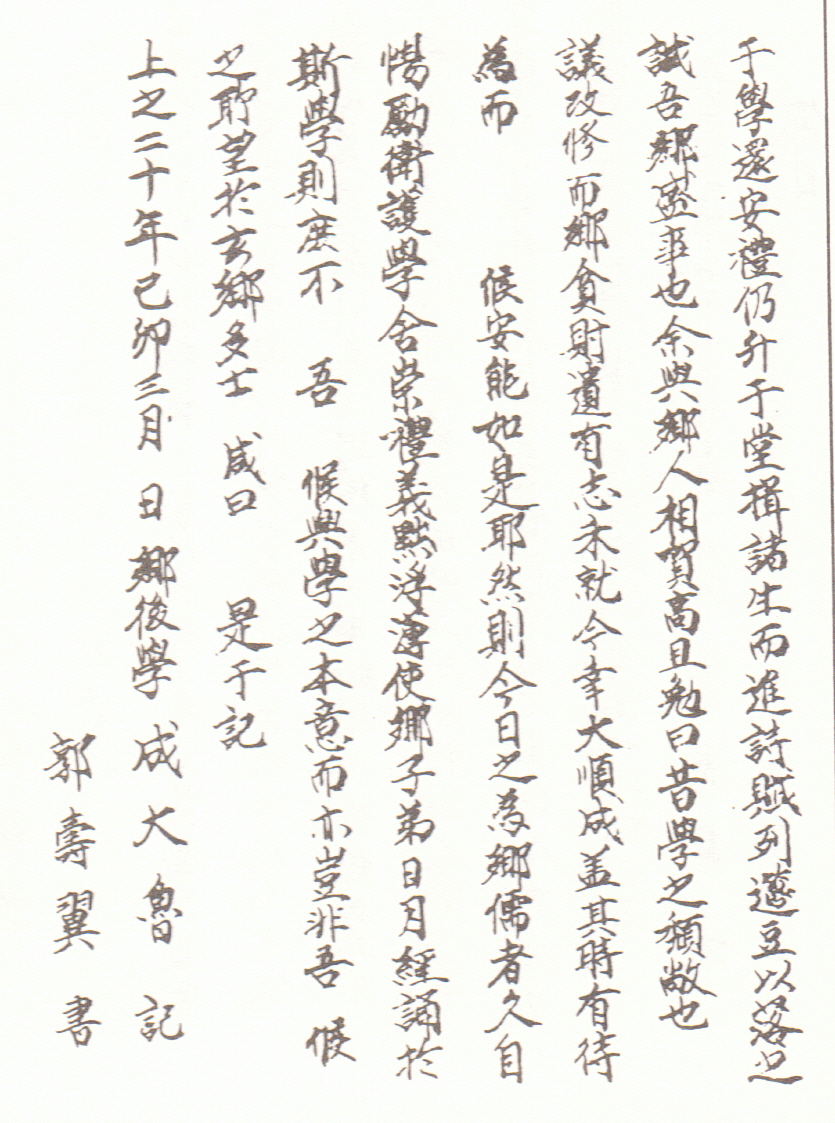 于學還安禮仍升于堂揖諸生而進詩賦列籩豆以落之
誠吾鄉盛事也余與鄉人相賀高且勉曰昔學之頹敝也
議改修而鄉貧財遺有志未就今幸大順成盖其時有待
為而 候安能如是耶然則今日之為鄉儒者久自
惕勵衛護學舍崇禮義黜浮薄使鄉子弟日月經誦於
斯學則庶不 吾 候興學之本意而亦豈非吾 候
之所望於玄鄉多士 咸曰 是于記
上之二十年己卯三月 日鄉後學 成大魯 記
郭壽翼 書